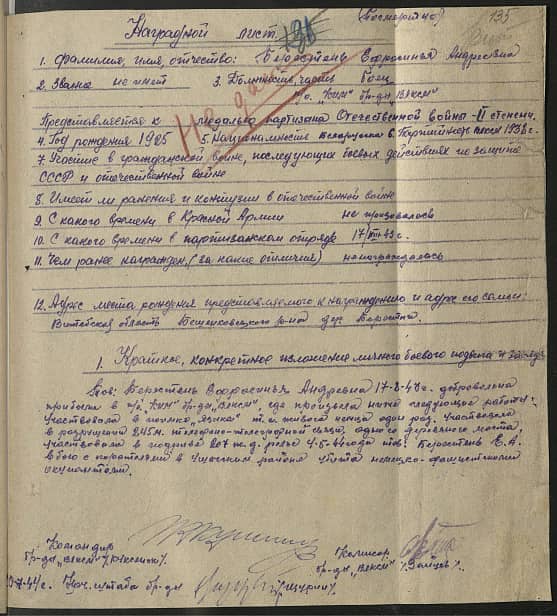 135
Наградной лист
(Посмертно)
1. Фамилия, имя, отчество: Берестень Ефросинья Андреевна
2. Звание не имеет 3. Должность, часть Боец
п/о. "КИМ" бр-ды "ВЛКСМ"
Представляется к медалью партизана Отечественной войны II степени.
Не дан
4. Год рождения 1925 5. Национальность Белоруска 6. Партийность
7. Участие в гражданской войне, последующих боевых действиях по защите
СССР и отечественной войне
8. Имеет ли ранения и контузии в отечественной войне
9. С какого времени в Красной Армии не
10. С какого времени в партизанском отряде
11. Чем ранее награжден, (за какие отличия) не награждалась
12. Адрес места рождения представляемого к награждению и адрес его семьи:
Витебская область Бешенковецкого р-на дер. Берестни.
1. Краткое, конкретное изложение личного боевого подвига
Тов: Берестень Ефросинья Андреевна добровольно
прибыла в п/о "КИМ" бр-ды "ВЛКСМ", где провела ниже следующие работы:
Участвовала в один раз. Участвовала
в разрушении телефонно-телеграфной связи, одного деревянного моста,
участвовала в подрыве 207 ж.д. рельс 4-5-44 года тов: Берестень Е. А.
в бою с карателями в Ушачском районе убита немецко-фашистскими
оккупантами.
Командир
бр-ды "ВЛКСМ"
Комиссар
бр-ды "ВЛКСМ"
Нач. штаба бр-ды